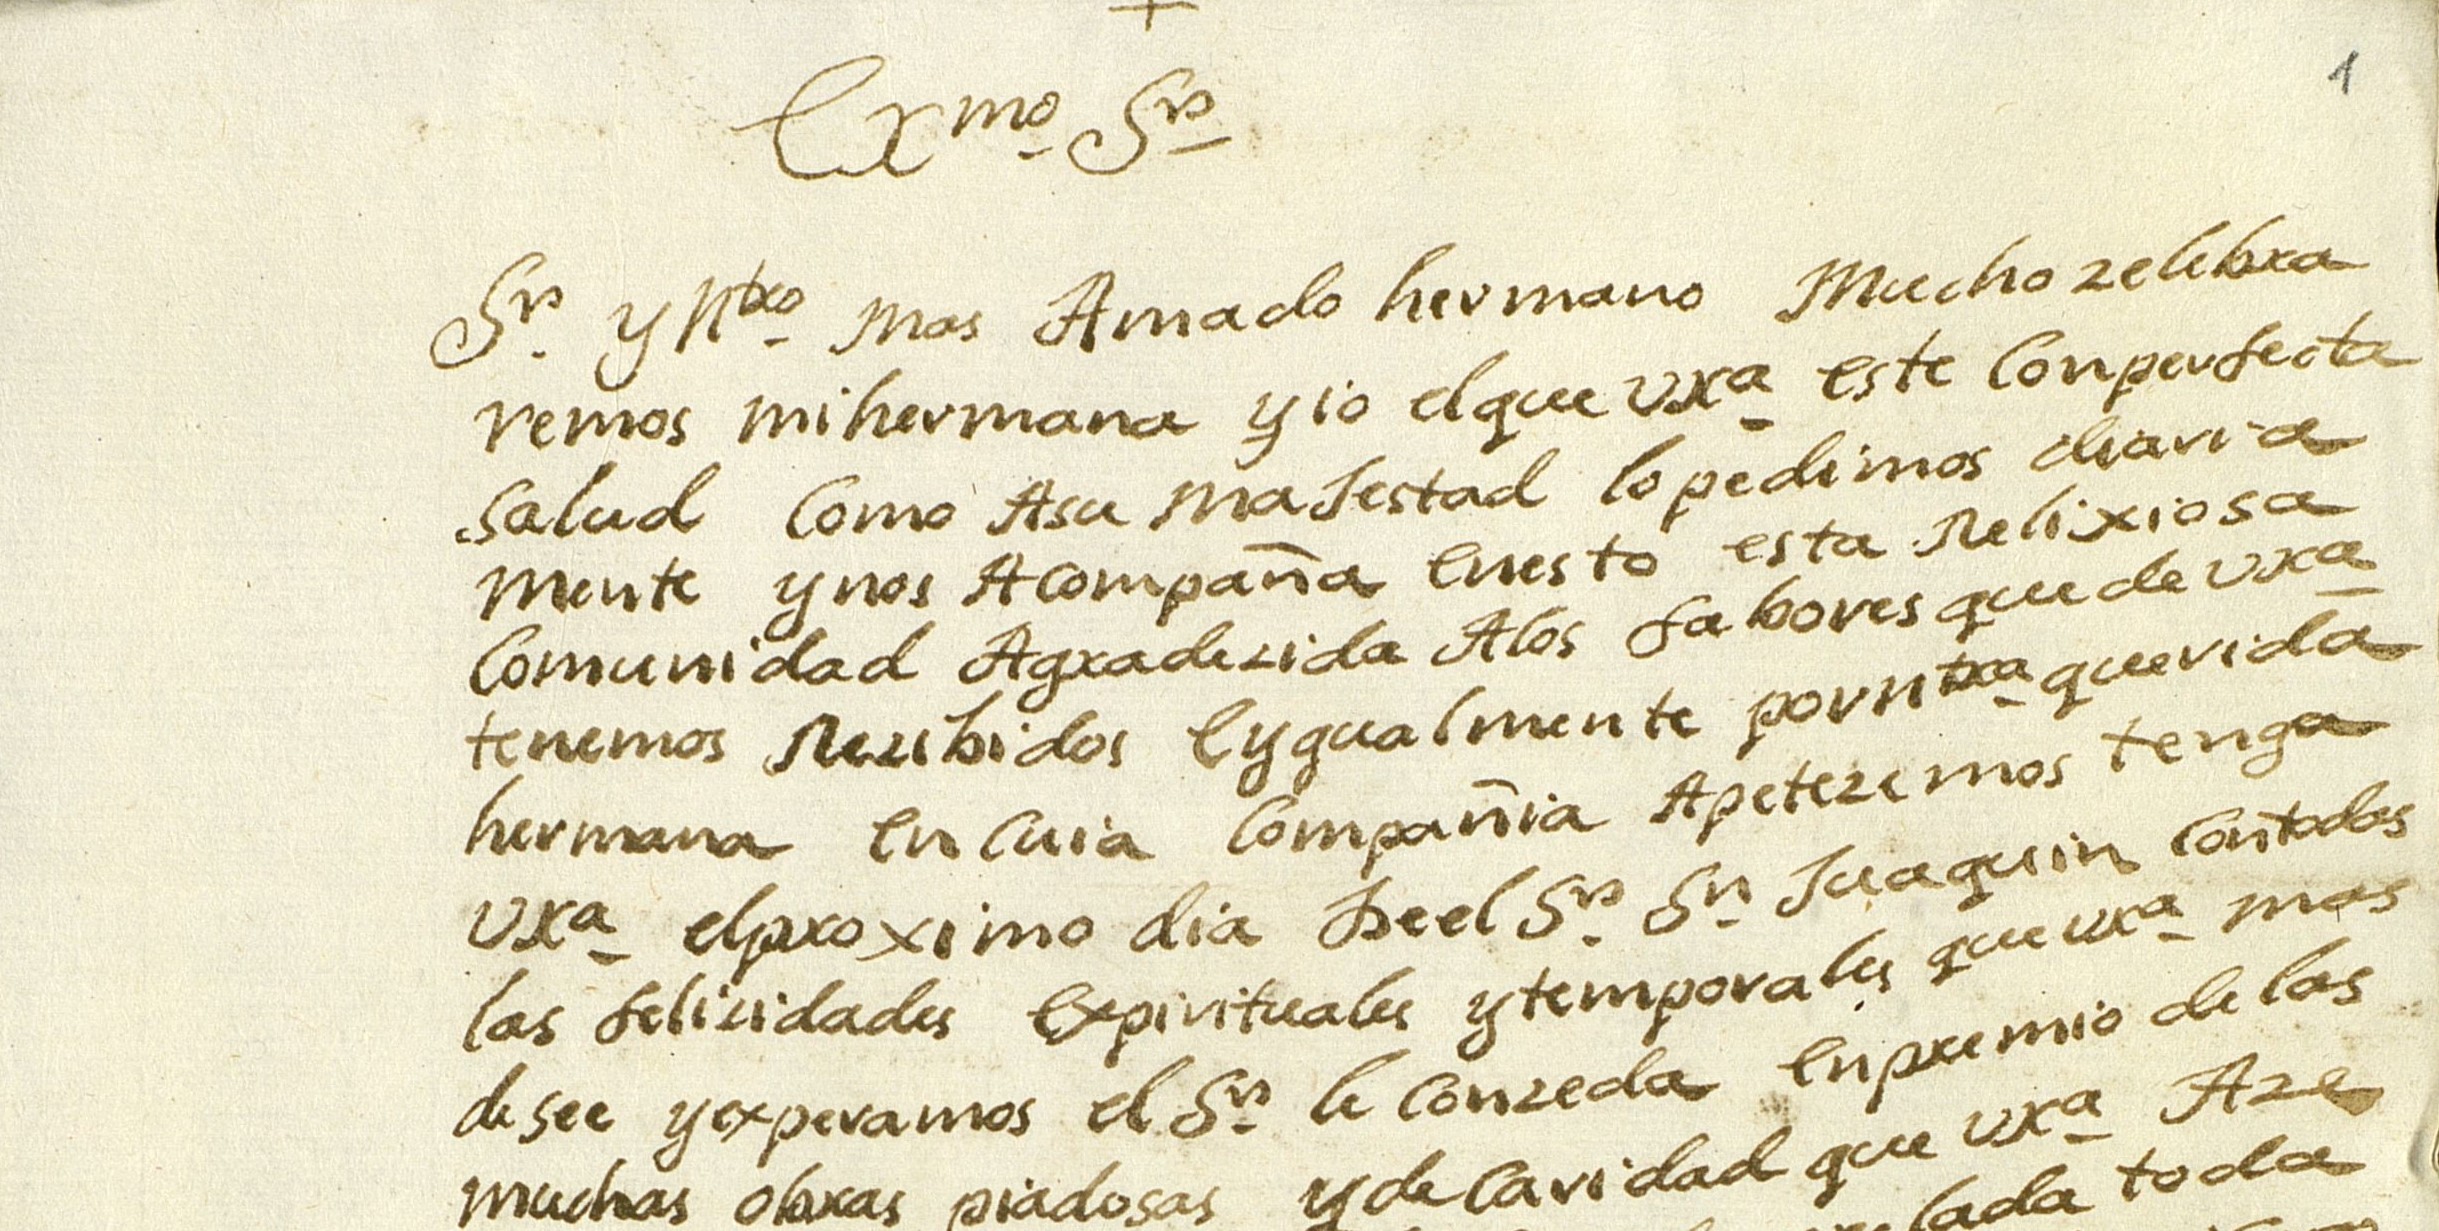 +
1
Exmo Sr
Sr y ntro mas Amado hermano Mucho zelebra
remos mi hermana y io el que vxa este Con perfecta
salud Como Asu maJestad lo pedimos diaria
mente y nos Acompaña Enesto esta Relixiosa
Comunidad Agradezida Alos fabores que de vxa
tenemos Rezibidos Eygualmente por ntra querida
hermana En Cuia Compañia Apetezemos tenga
vxa el proximo dia de el Sr Sn Juaquin Contodas
las felizidades Expirituales y temporales que vxa mas
desee y experamos el Sr le Conzeda En premio de las
muchas obras piadosas y de Caridad que vxa Aze
toda